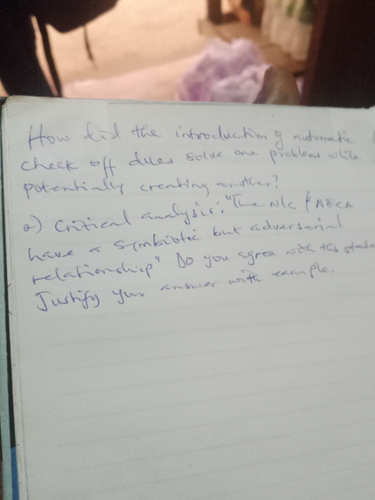 How did the introduction of automatic
check off dues solve one problem while
potentially creating another?
2) Critical analysis: "The NLC & NECA
have a symbiotic but adversarial
relationship" Do you agree with this
Justify your answer with example.